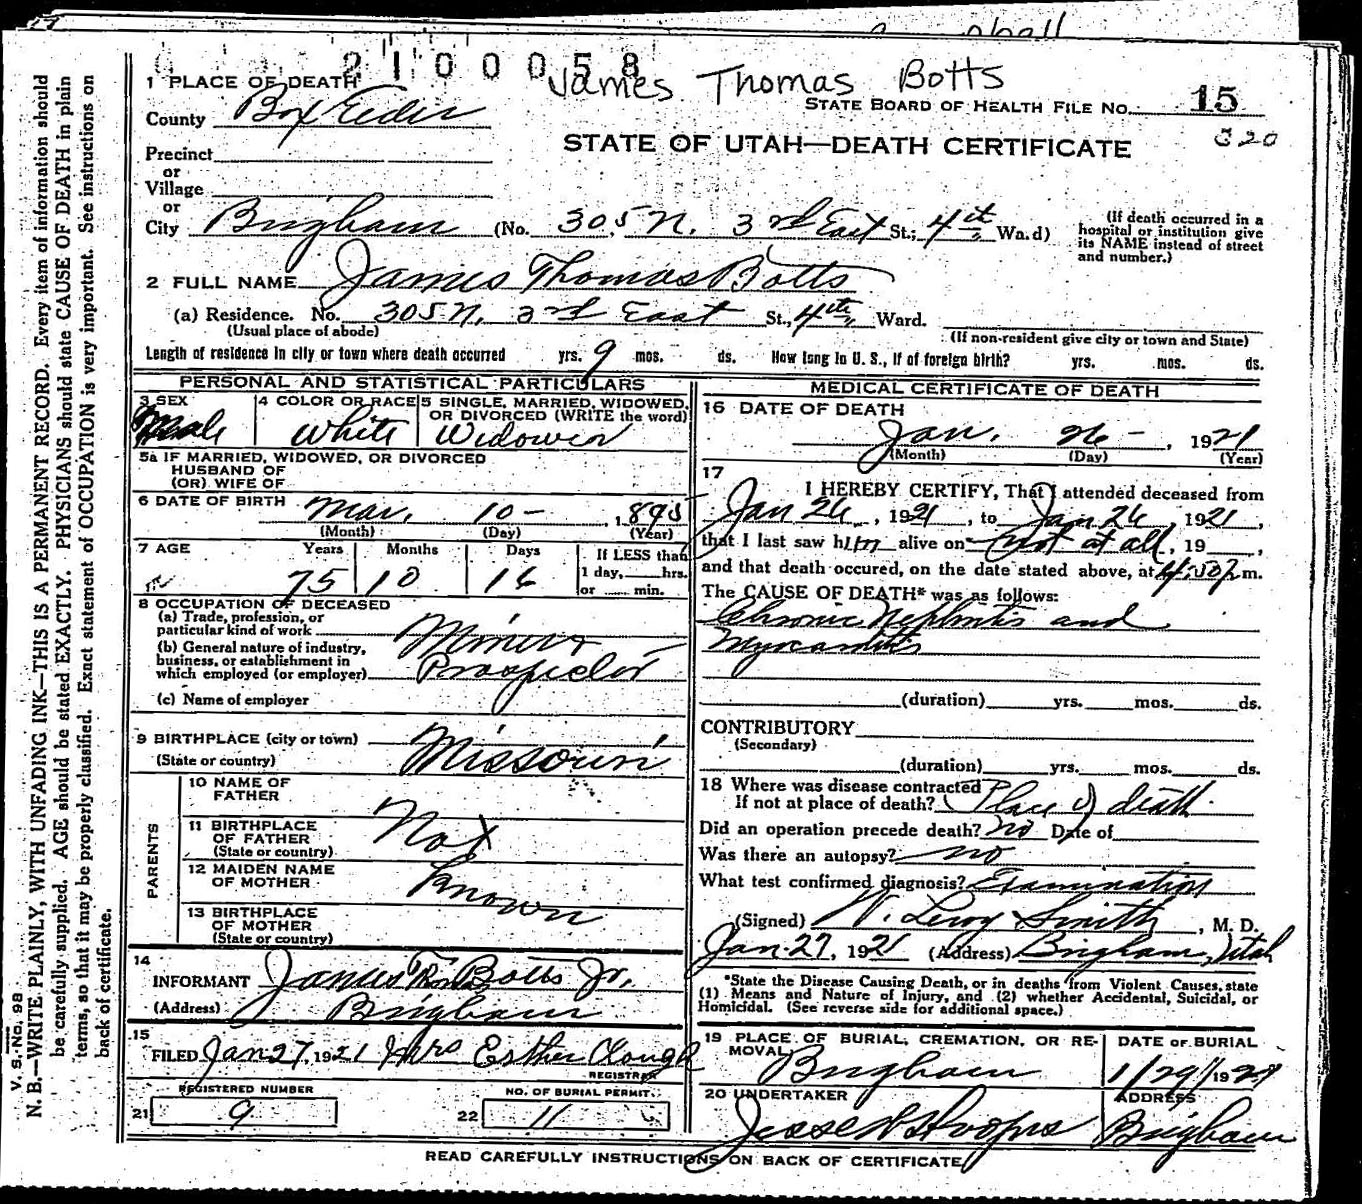 2100058
James Thomas Botts
1 PLACE OF DEATH
STATE BOARD OF HEALTH FILE No. 15
County Box Elder
320
STATE OF UTAH—DEATH CERTIFICATE
Precinct
or
Village
or
City Brigham (No. 305 N. 3rd East St.; 4th Wa.d)
(If death occurred in a hospital or institution give its NAME instead of street and number.)
2 FULL NAME James Thomas Botts
(a) Residence. No. 305 N. 3rd East St., 4th Ward.
(Usual place of abode)
(If non-resident give city or town and State)
Length of residence in city or town where death occurred yrs. 9 mos. ds. How long in U. S., if of foreign birth? yrs. mos. ds.
PERSONAL AND STATISTICAL PARTICULARS
3 SEX Male
4 COLOR OR RACE White
5 SINGLE, MARRIED, WIDOWED, OR DIVORCED (WRITE the word) Widower
5a IF MARRIED, WIDOWED, OR DIVORCED
HUSBAND OF
(OR) WIFE OF
6 DATE OF BIRTH Mar. 10 - , 1845
(Month) (Day) (Year)
7 AGE Years Months Days If LESS than
75 10 16 1 day, hrs.
or min.
8 OCCUPATION OF DECEASED
(a) Trade, profession, or
particular kind of work Miner
(b) General nature of industry,
business, or establishment in
which employed (or employer) Prospector
(c) Name of employer
9 BIRTHPLACE (city or town)
(State or country) Missouri
PARENTS
10 NAME OF FATHER
11 BIRTHPLACE OF FATHER (State or country) Not
12 MAIDEN NAME OF MOTHER Known
13 BIRTHPLACE OF MOTHER (State or country)
14
INFORMANT James Botts Jr.
(Address) Brigham
15
FILED Jan 27, 1921 Mrs Esther Clough
REGISTRAR
REGISTERED NUMBER
21 9
NO. OF BURIAL PERMIT.
22 11
MEDICAL CERTIFICATE OF DEATH
16 DATE OF DEATH
Jan. 26 - , 1921
(Month) (Day) (Year)
17
I HEREBY CERTIFY, That I attended deceased from
Jan 26, 1921, to Jan 26, 1921,
that I last saw him alive on not at all, 19 ,
and that death occured, on the date stated above, at 4:50 p m.
The CAUSE OF DEATH* was as follows:
Chronic Nephritis and
Myocarditis
(duration) yrs. mos. ds.
CONTRIBUTORY
(Secondary)
(duration) yrs. mos. ds.
18 Where was disease contracted
If not at place of death? Place of death.
Did an operation precede death? no Date of
Was there an autopsy? no
What test confirmed diagnosis? Examination
(Signed) W. Leroy Smith, M. D.
Jan 27, 1921 (Address) Brigham, Utah
*State the Disease Causing Death, or in deaths from Violent Causes, state
(1) Means and Nature of Injury, and (2) whether Accidental, Suicidal, or
Homicidal. (See reverse side for additional space.)
19 PLACE OF BURIAL, CREMATION, OR REMOVAL Brigham
DATE OF BURIAL
1/29/1921
20 UNDERTAKER
ADDRESS
Brigham
READ CAREFULLY INSTRUCTIONS ON BACK OF CERTIFICATE
V. S. No. 98
N. B.—WRITE PLAINLY, WITH UNFADING INK—THIS IS A PERMANENT RECORD. Every item of information should
be carefully supplied. AGE should be stated EXACTLY. PHYSICIANS should state CAUSE OF DEATH in plain
terms, so that it may be properly classified. Exact statement of OCCUPATION is very important. See instructions on
back of certificate.